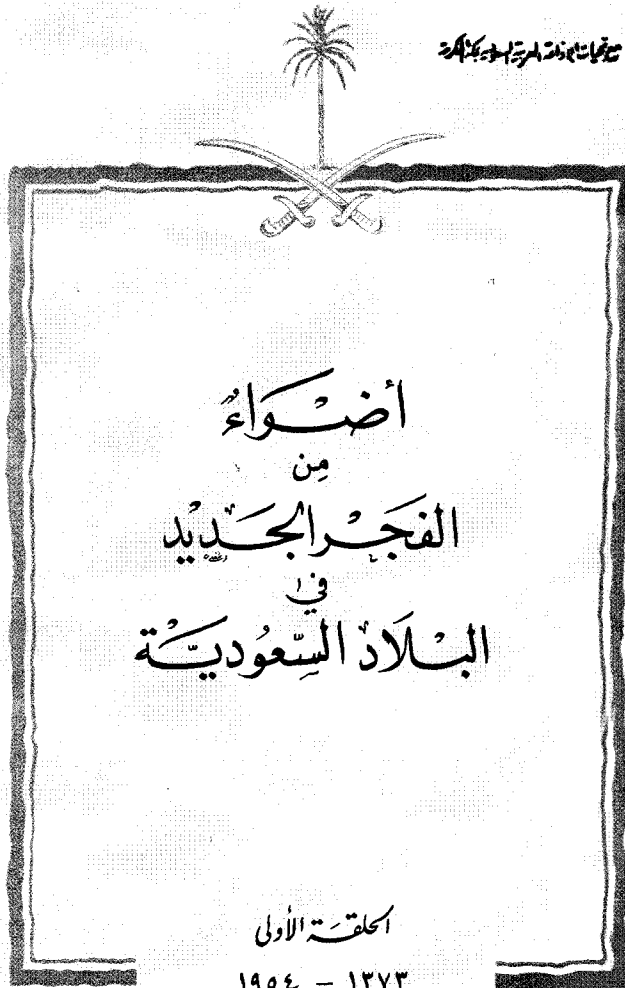 مع تحيات الإذاعة العربية السعودية بمكة المكرمة
أضواء
من
الفجر الجديد
في
البلاد السعودية
الحلقة الأولى
١٣٧٣ – ١٩٥٤